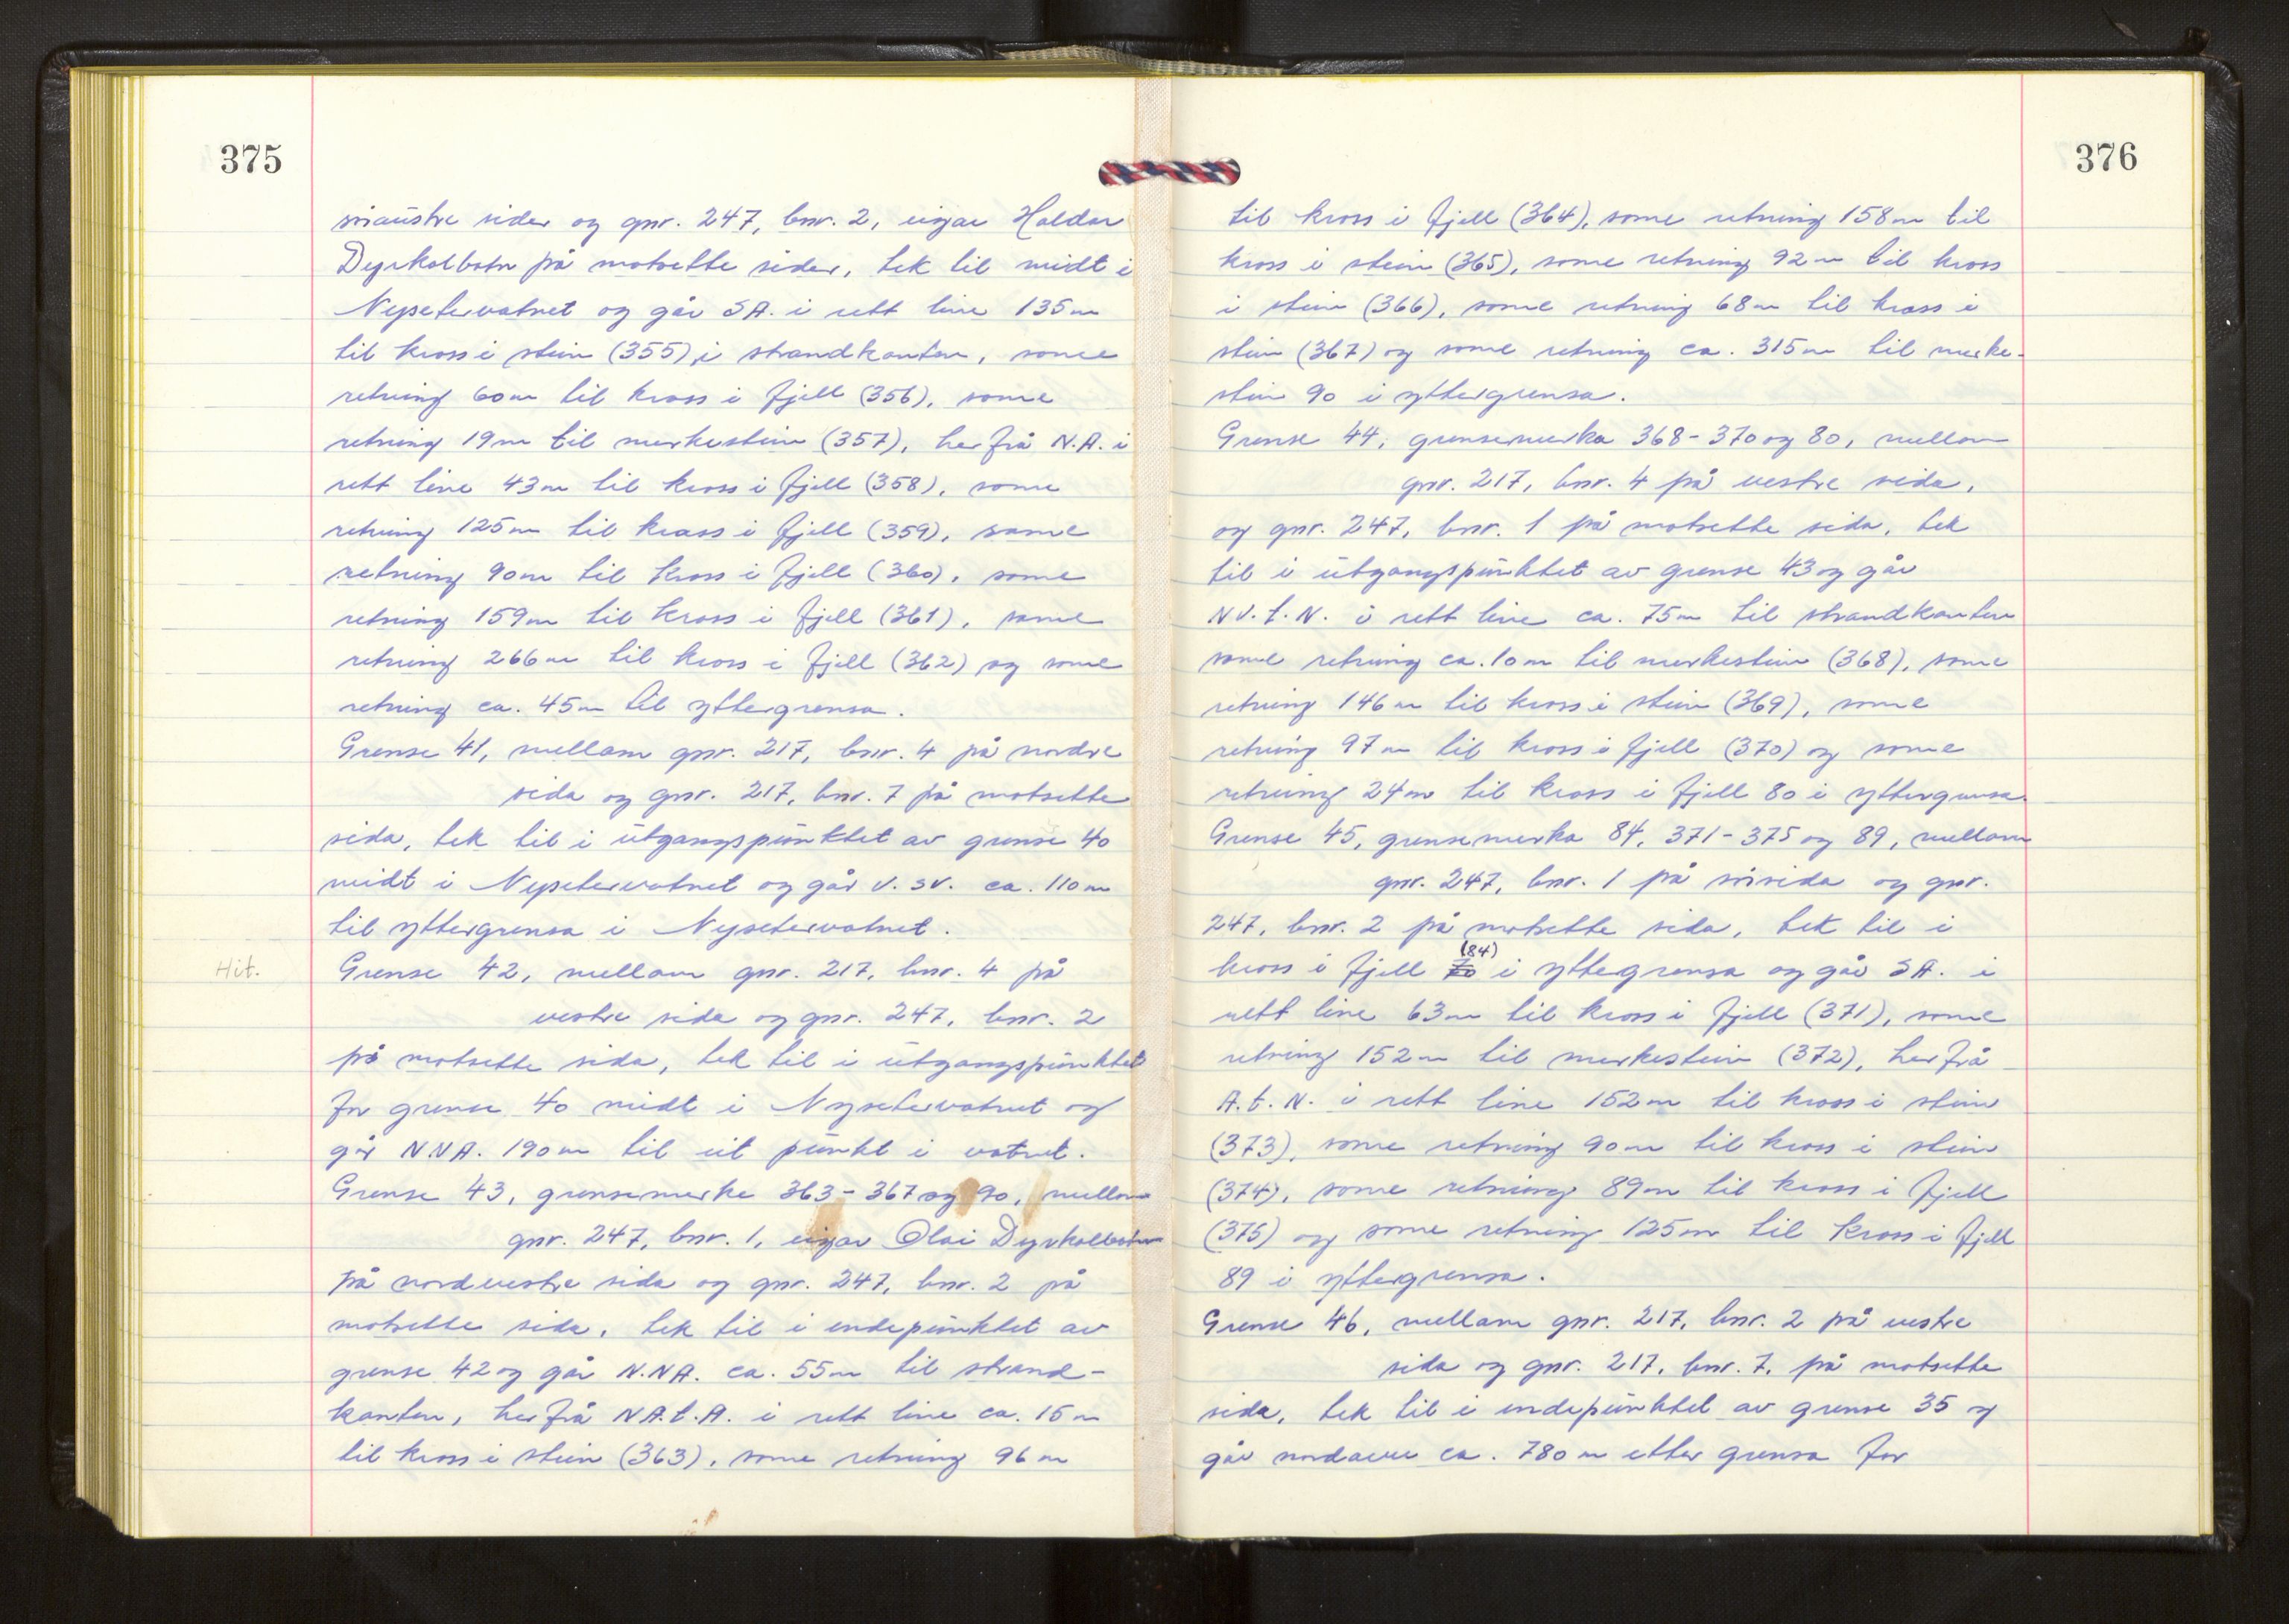 375
søraustre sider og gnr. 247, bnr. 2, eigar Haldor
Dyrkolbotn på motsette sider, tek til midt i
Nysetervatnet og går SA. i rett line 135m
til kross i stein (355) i strandkanten, same
retning 60m til kross i fjell (356), same
retning 19m til merkestein (357), herfrå N.A. i
rett line 43m til kross i fjell (358), same
retning 125m til kross i fjell (359), same
retning 90m til kross i fjell (360), same
retning 159m til kross i fjell (361), same
retning 266m til kross i fjell (362) og same
retning ca. 45m til yttergrensa.
Grense 41, mellom gnr. 217, bnr. 4 på nordre
sida og gnr. 217, bnr. 7 på motsette
sida, tek til i utgangspunktet av grense 40
midt i Nysetervatnet og går V.SV. ca. 110m
til yttergrensa i Nysetervatnet.
Hit.
Grense 42, mellom gnr. 217, bnr. 4 på
vestre sida og gnr. 247, bnr. 2
på motsette sida, tek til i utgangspunktet
for grense 40 midt i Nysetervatnet og
går N.NA. 190m til eit punkt i vatnet.
Grense 43, grensemerke 363-367 og 90, mellom
gnr. 247, bnr. 1, eigar Olai Dyrkolbotn
på nordvestre sida og gnr. 247, bnr. 2 på
motsette sida, tek til i endepunktet av
grense 42 og går N.NA. ca. 55m til strand-
kanten, herfrå NA.t.A. i rett line ca. 15m
til kross i stein (363), same retning 96m
376
til kross i fjell (364), same retning 158m til
kross i stein (365), same retning 92m til kross
i stein (366), same retning 68m til kross i
stein (367) og same retning ca. 315m til merke-
stein 90 i yttergrensa.
Grense 44, grensemerka 368-370 og 80, mellom
gnr. 217, bnr. 4 på vestre sida,
og gnr. 247, bnr. 1 på motsette sida, tek
til i utgangspunktet av grense 43 og går
NV.t.N. i rett line ca. 75m til strandkanten
same retning ca. 10m til merkestein (368), same
retning 146m til kross i stein (369), same
retning 97m til kross i fjell (370) og same
retning 24m til kross i fjell 80 i yttergrensa.
Grense 45, grensemerka 84, 371-375 og 89, mellom
gnr. 247, bnr. 1 på sørsida og gnr.
247, bnr. 2 på motsette sida, tek til i
(84)
kross i fjell 70 i yttergrensa og går SA. i
rett line 63m til kross i fjell (371), same
retning 152m til merkestein (372), herfrå
A.t.N. i rett line 152m til kross i stein
(373), same retning 90m til kross i stein
(374), same retning 89m til kross i fjell
(375) og same retning 125m til kross i fjell
89 i yttergrensa.
Grense 46, mellom gnr. 217, bnr. 2 på vestre
sida og gnr. 217, bnr. 7, på motsette
sida, tek til i endepunktet av grense 35 og
går nordover ca. 780m etter grensa for